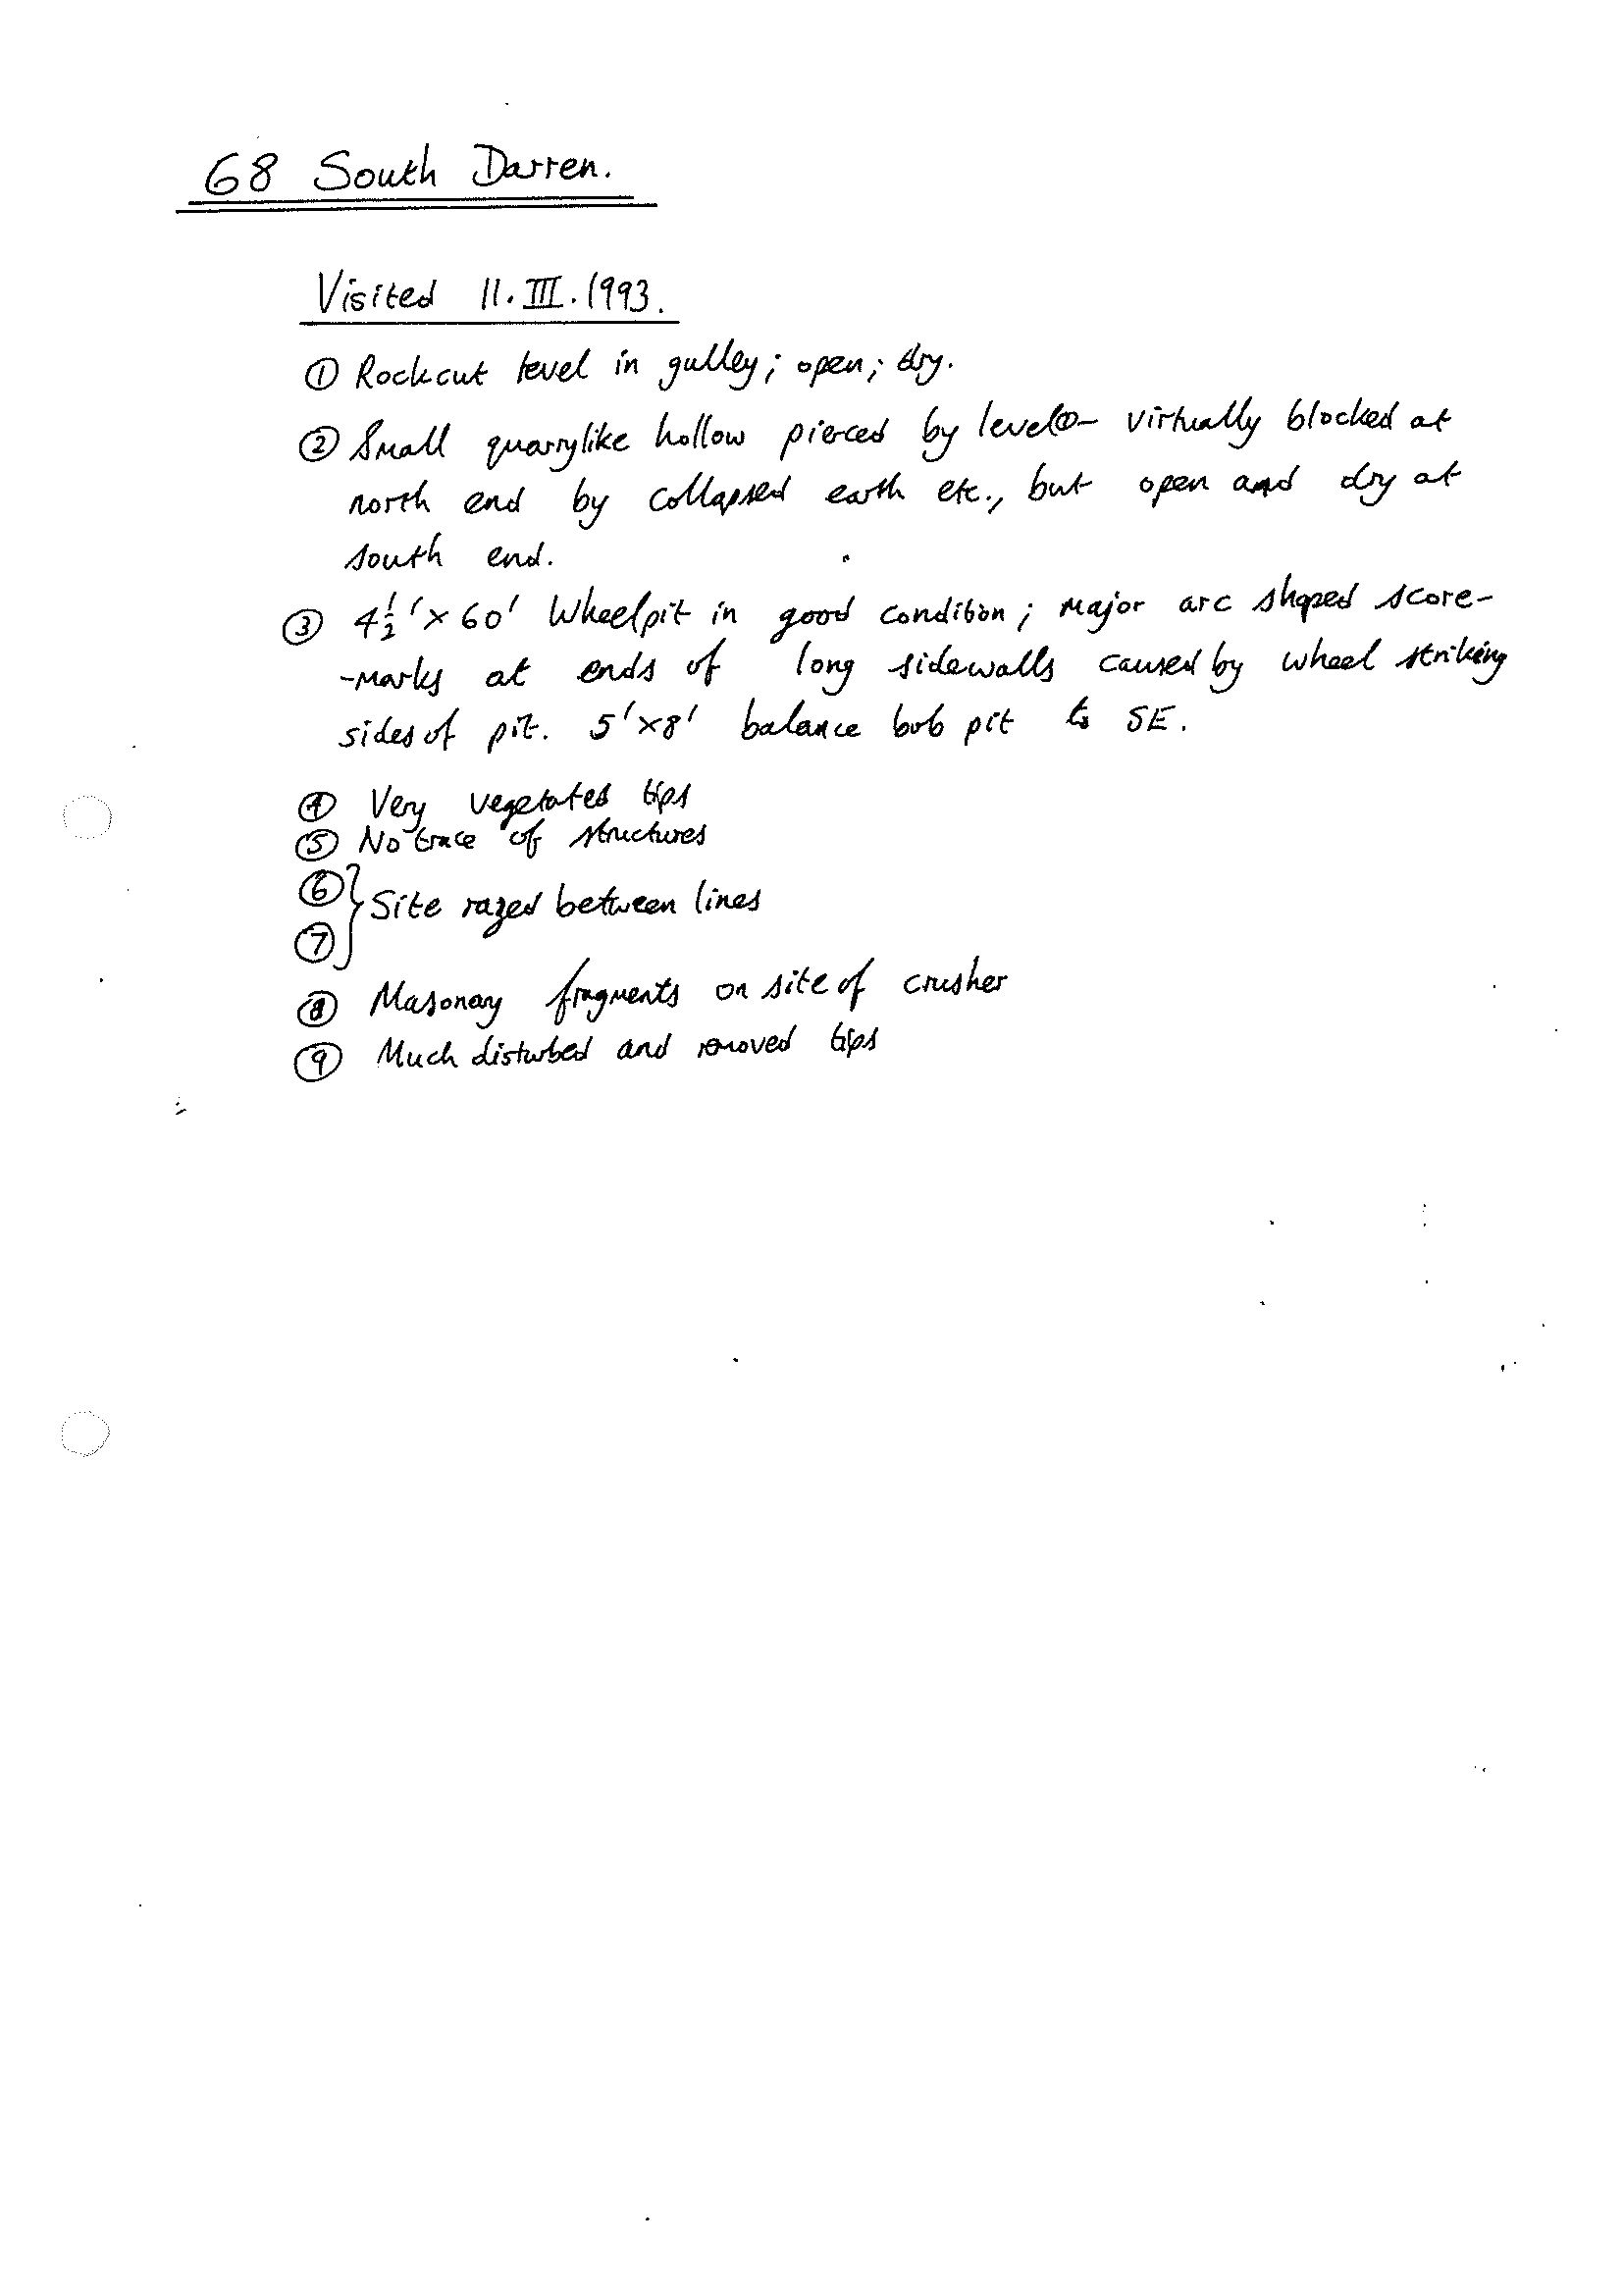 68 South Darren.
Visited 11.III.1993.
① Rockcut level in gulley; open; dry.
② Small quarrylike hollow pierced by level – virtually blocked at
north end by collapsed earth etc., but open and dry at
south end.
③ 4½' × 60' Wheelpit in good condition; major arc shaped score-
-marks at ends of long sidewalls caused by wheel striking
sides of pit. 5' × 8' balance bob pit to SE.
④ Very vegetated tips
⑤ No trace of structures
⑥
⑦ } Site razed between lines
⑧ Masonary fragments on site of crusher
⑨ Much disturbed and removed tips